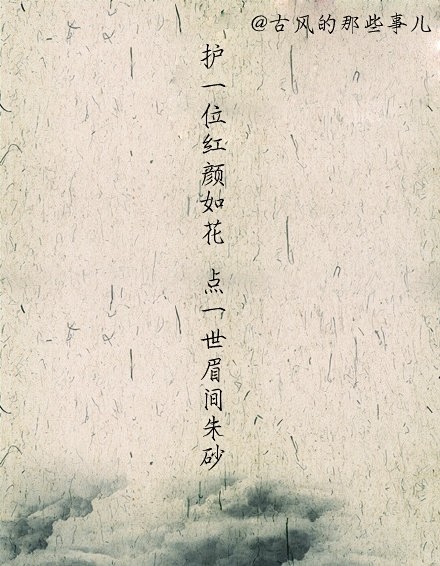 @古风的那些事儿
护一位红颜如花 点一世眉间朱砂